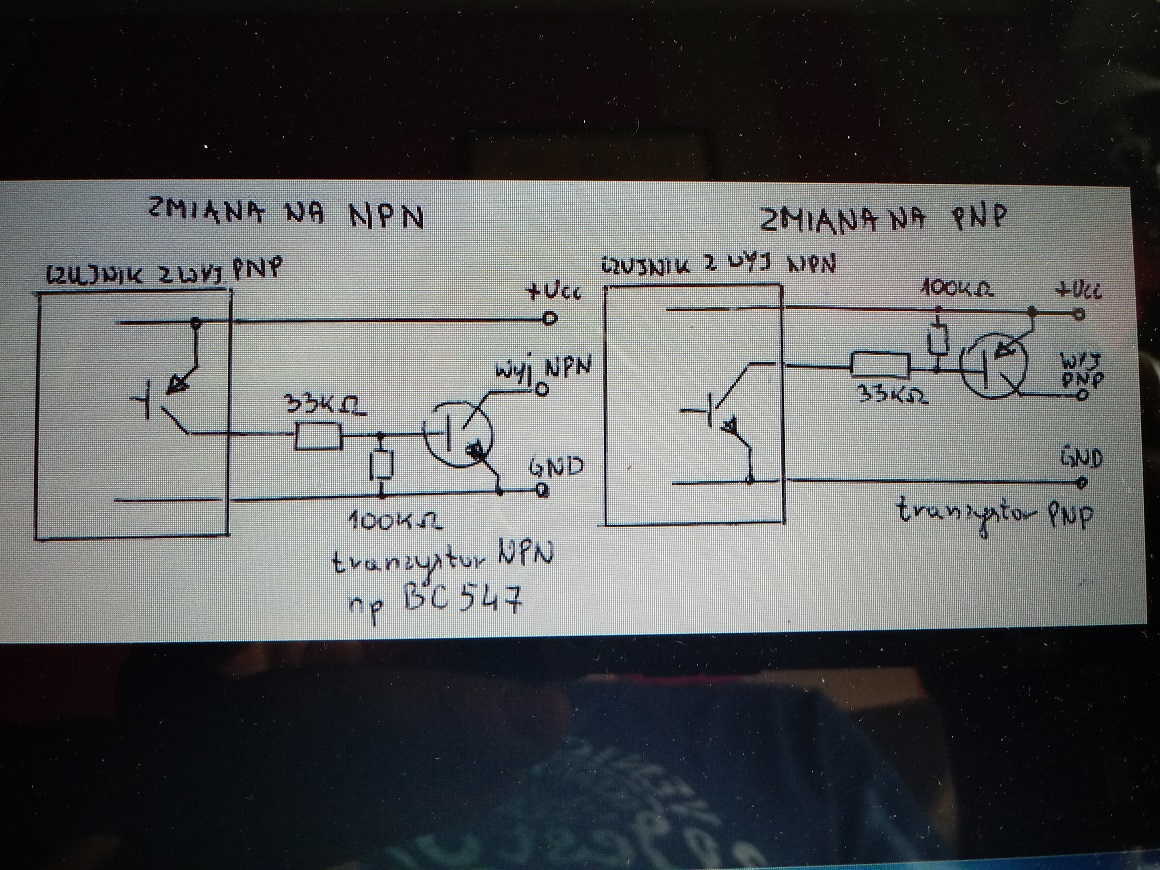 ZMIANA NA NPN
CZUJNIK Z WYJ PNP
+Ucc
wyj NPN
33KΩ
GND
100KΩ
tranzystor NPN
np BC 547
ZMIANA NA PNP
CZUJNIK Z WYJ NPN
100KΩ
+Ucc
WYJ
PNP
33KΩ
GND
tranzystor PNP